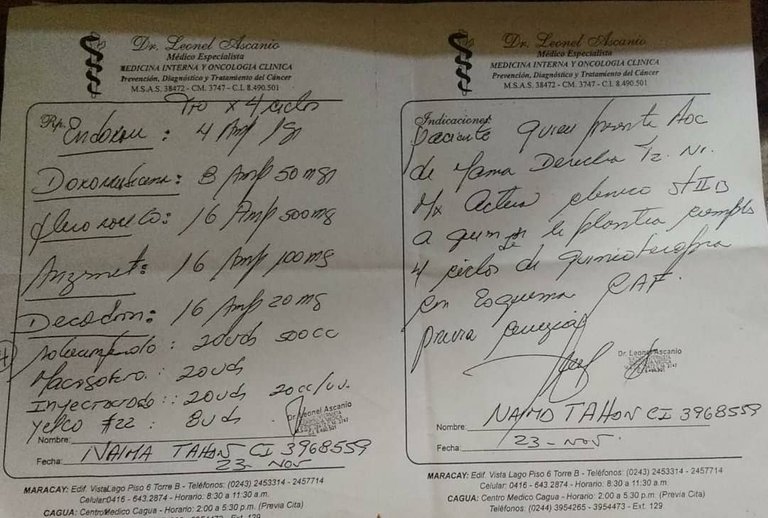 Dr. Leonel Ascanio
Médico Especialista
MEDICINA INTERNA Y ONCOLOGIA CLINICA
Prevención, Diagnóstico y Tratamiento del Cáncer
M.S.A.S. 38472 - CM. 3747 - C.I. 8.490.501
Tto x 4 ciclos
Rp.
Endoxan : 4 Amp 1gr
Doxorubicina : 8 Amp 50 mgr
16 Amp 500 mg
Anzemet : 16 Amp 100 mg
Decadron : 16 Amp 20 mg
20 uds 500 cc
Macrogotero : 20 uds
Inyectadora : 20 uds 20 cc
Yelco #22 : 8 uds
Dr. Leonel Ascanio
Nombre: NAIMA TAHON CI 3968559
Fecha: 23-Nov
MARACAY: Edif. Vista Lago Piso 6 Torre B - Teléfonos: (0243) 2453314 - 2457714
Celular: 0416 - 643.2874 - Horario: 8:30 a 11:30 a.m.
CAGUA: Centro Medico Cagua - Horario: 2:00 a 5:30 p.m. (Previa Cita)
3954265 - 3954473 - Ext. 129
Dr. Leonel Ascanio
Médico Especialista
MEDICINA INTERNA Y ONCOLOGIA CLINICA
Prevención, Diagnóstico y Tratamiento del Cáncer
M.S.A.S. 38472 - CM. 3747 - C.I. 8.490.501
Indicaciones:
Paciente quien presenta Adc
de Mama Derecha T2 N1
Mx clinico St IIB
a quien se le plantea cumplir
4 ciclos de quimioterapia
con Esquema CAF.
previa
Dr. Leonel Ascanio
Nombre: NAIMA TAHON CI 3968559
Fecha: 23-Nov.
MARACAY: Edif. Vista Lago Piso 6 Torre B - Teléfonos: (0243) 2453314 - 2457714
Celular: 0416 - 643.2874 - Horario: 8:30 a 11:30 a.m.
CAGUA: Centro Medico Cagua - Horario: 2:00 a 5:30 p.m. (Previa Cita)
Teléfonos: (0244) 3954265 - 3954473 - Ext. 129